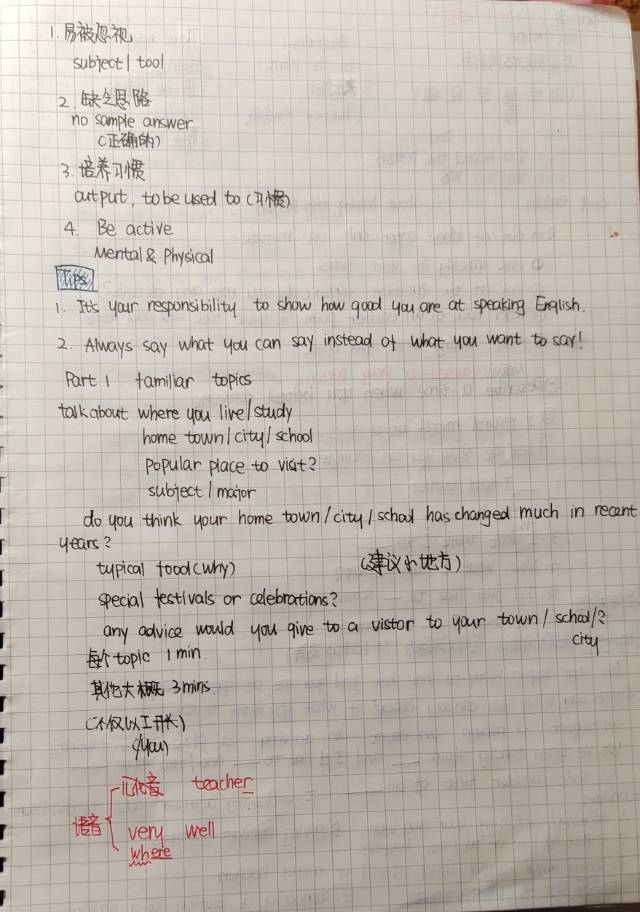 1. 易被忽视
subject / tool
2. 缺乏思路
no sample answer
(正确的)
3. 培养习惯
output, to be used to (习惯)
4. Be active
Mental & Physical
Tips
1. It's your responsibility to show how good you are at speaking English.
2. Always say what you can say instead of what you want to say!
Part 1 familiar topics
talk about where you live/study
home town/city/school
popular place to visit?
subject/major
do you think your home town/city/school has changed much in recent
years?
typical food (why) (建议小地方)
special festivals or celebrations?
any advice would you give to a vistor to your town/school/?
city
每个topic 1 min
其他大概 3 mins.
(不仅以I开头)
(/you)
儿化音 teacher
语音
very well
where